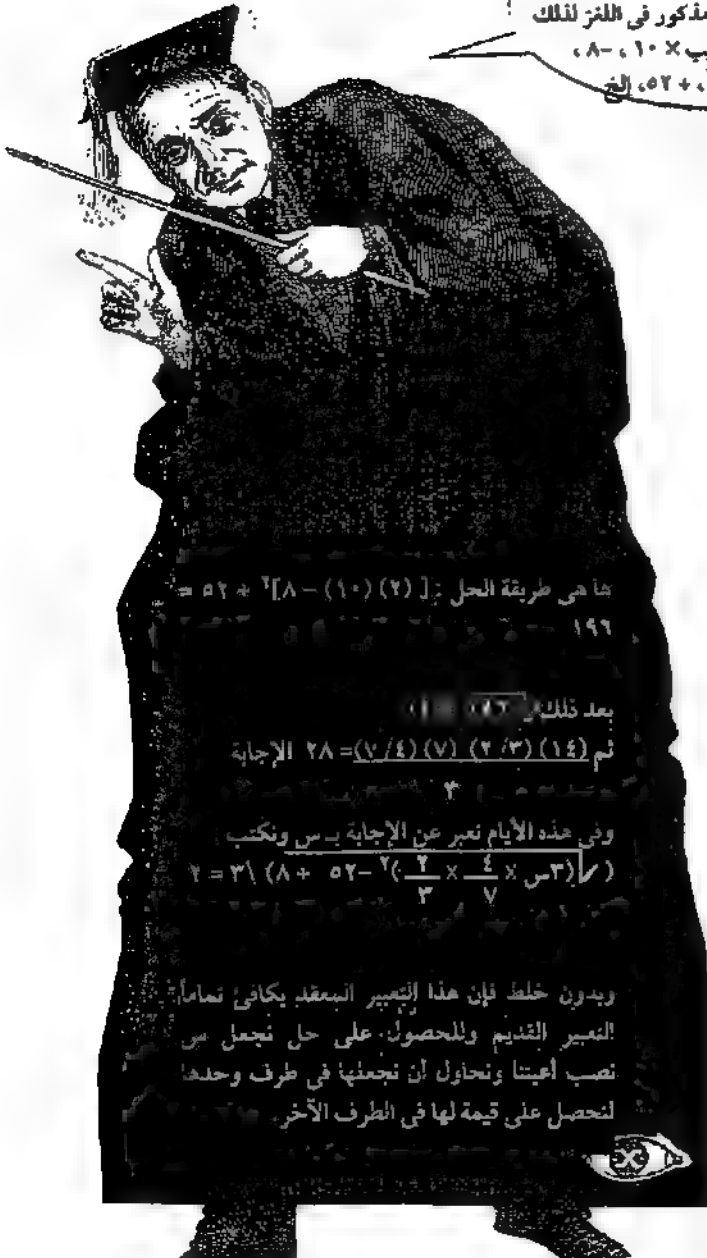 مذكور في اللغز لذلك
× ١٠، -٨،
+ ٥٢، الخ
ها هي طريقة الحل : [ (٢) (١٠) – ٨]² + ٥٢ =
١٩٦
بعد ذلك
ثم (١٤) (٢/٣) (٧) (٧/٤) = ٢٨ الإجابة
٣
وفي هذه الأيام نعبر عن الإجابة بـ س ونكتب
( √(٣س × ٤/٧ × ٢/٣)² -٥٢ + ٨) \ ٣ = ٢
وبدون خلط فإن هذا التعبير المعقد يكافئ تماماً
التعبير القديم وللحصول على حل نجعل س
نصب أعيننا ونحاول أن نجعلها في طرف وحدها
لنحصل على قيمة لها في الطرف الآخر.
X